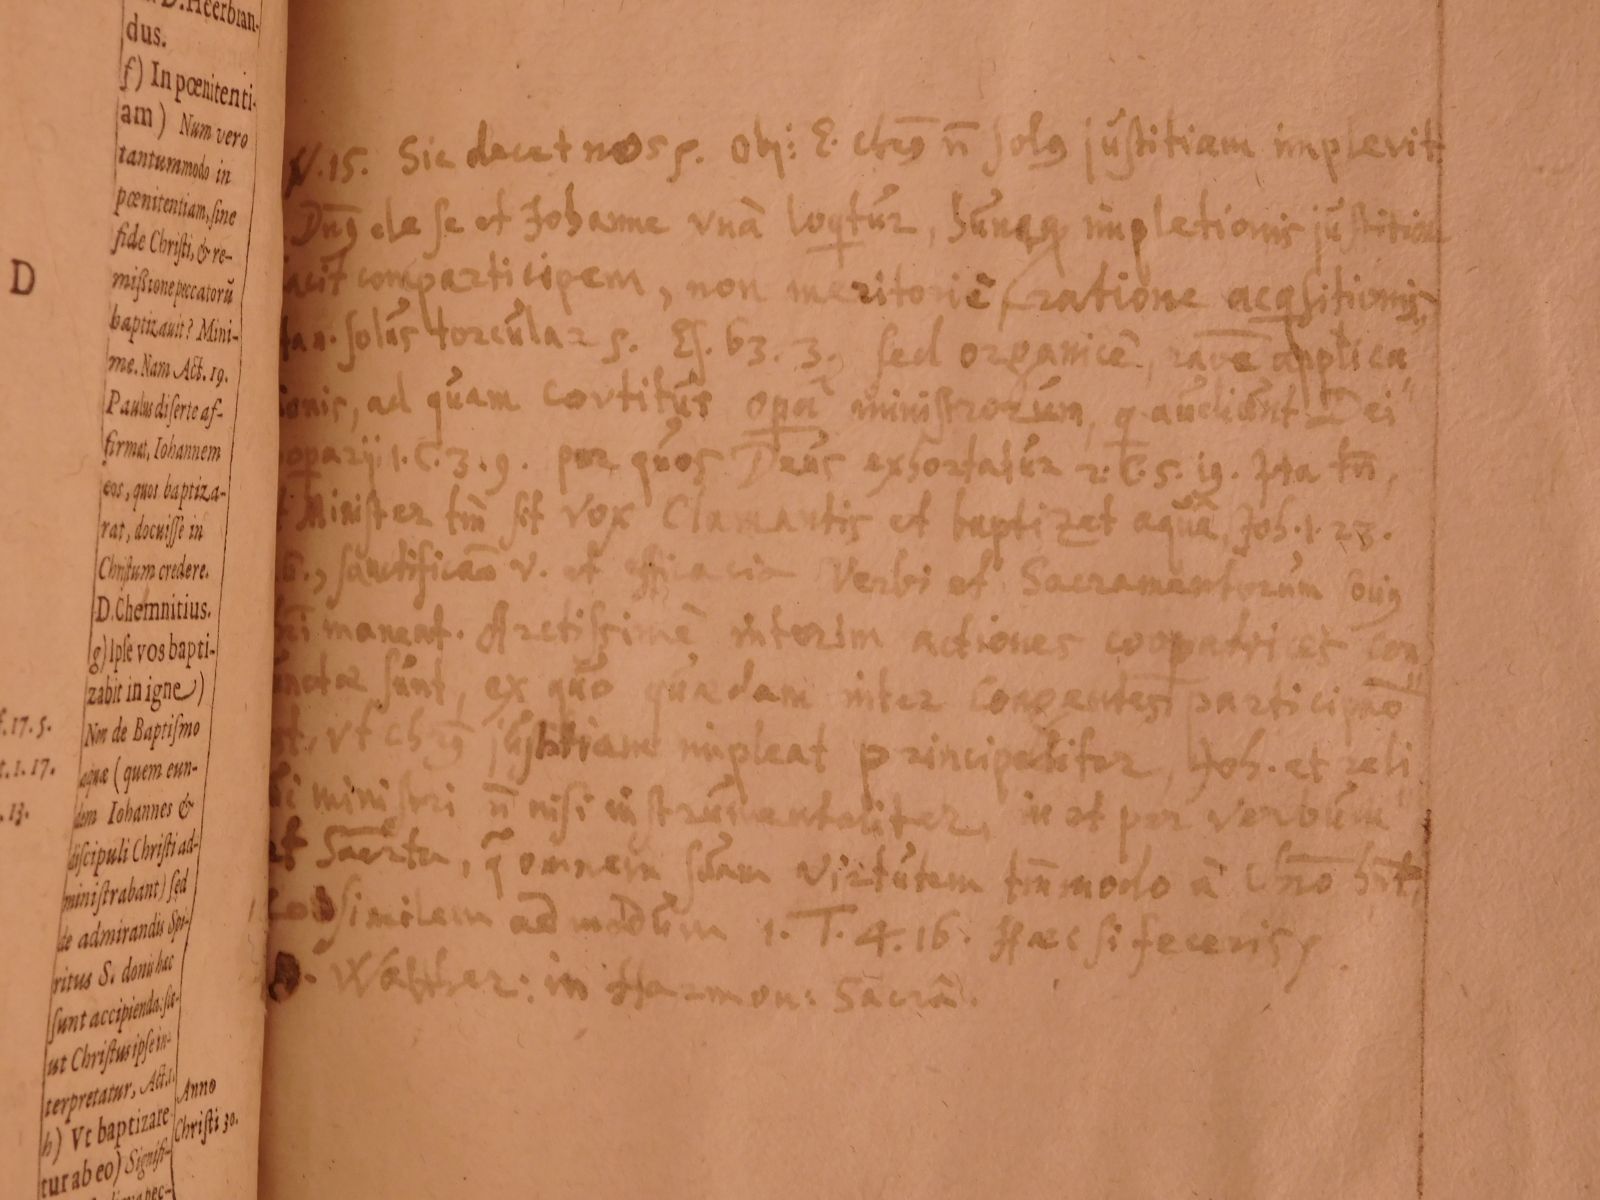 D
f. 17. 5.
t. 1. 17.
. 13.
D. Heerbran-
dus.
f) In pœnitenti-
am) Num vero
tantummodo in
pœnitentiam, sine
fide Christi, & re-
missione peccatorū
baptizauit? Mini-
me. Nam Act. 19.
Paulus diserte af-
firmat, Iohannem
eos, quos baptiza-
rat, docuisse in
Christum credere.
D. Chemnitius.
g) Ipse vos bapti-
zabit in igne)
Non de Baptismo
aquæ (quem eun-
dem Iohannes &
discipuli Christi ad-
ministrabant) sed
de admirandis Spi-
ritus S. donis hæc
sunt accipienda: sic-
ut Christus ipse in-
terpretatur, Act. 1.
h) Vt baptizare-
tur ab eo) Signifi-
Anno
Christi 30.
V. 15. Sic decet nos Obj: E. Chrꝯ n̄ solꝯ justitiam implevit
Dn̄ꝯ de se et Johanne vnà loqtur, hunqꝫ impletionis justitiæ
facit comparticipem, non meritoriè ratione acqsitionis
solus torcular Es. 63. 3. sed organicè, raōe applica
ionis, ad quam covtitur opā ministrorum, q audiunt Dei
cooparij 1. C. 3. 9. per quos Deus exhortatur 2. C. 5. 19. Ita tn̄,
Minister tm̄ sit vox Clamantis et baptizet aquâ, Joh. 1. 23.
sanctificaō v. et efficacia Verbi et Sacramentorum
maneat. Arctissimè interim actiones coopatrices con
unctæ sunt, ex quo quædam inter Coagentes participaō
st, vt Chrꝯ justitiam impleat principaliter, Joh. et reli
ministri n̄ nisi instrumentaliter, in et per verbum
et omnem suam virtutem tm̄modo à Chrō
Consimilem ad modum 1. T. 4. 16. Hæc si feceris
D. Walther: in Harmon: Sacrâ.